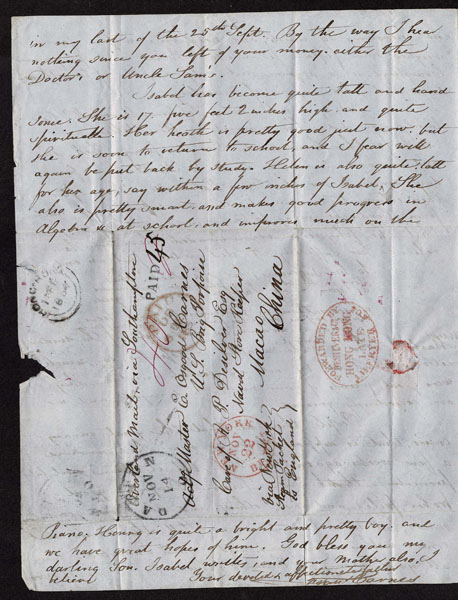 in my last of the 25th Sept. By the way I hear
nothing since you left of your money either the
Doctor's or Uncle Sam's.
Isabel has become quite tall and hand
some. She is 17. five feet 2 inches high and quite
spirituelle. Her health is pretty good just now, but
she is soon to return to school, and I fear will
again be put back by study. Helen is also quite tall
for her age, say within a few inches of Isabel. She
also is pretty smart and makes good progress in
Algebra & at school, and improves much on the
Overland Mail, via Southampton
PAID 45
Master E. Carnes
U.S. Ship Porpoise
Care of R. P. Desilver Esq
Naval Store Keeper
Macao
China
via New York
Steam Packet
to England
NOV
14
NEW YORK
NOV
22
FORWARDED BY
HONG KONG
Piano. Henry is quite a bright and pretty boy, and
we have great hopes of him. God bless you my
darling Son. Isabel writes, and your Mother also, I
believe
Your devoted & affectionate father
Carnes